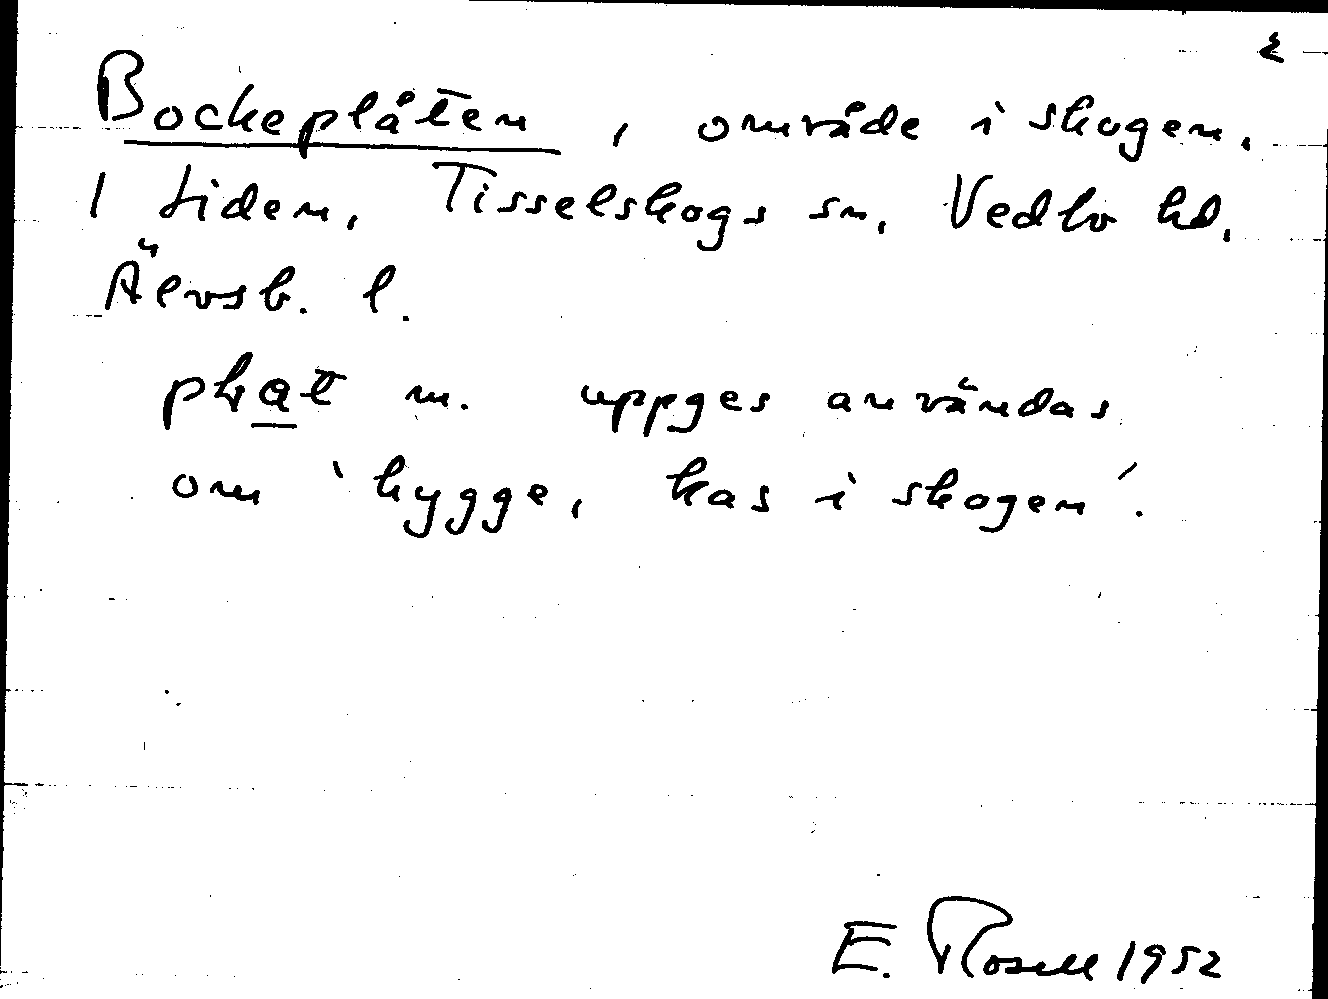 Bockeplåten, område i skogen.
I Liden, Tisselskogs sn, Vedbo hd,
Älvsb. l.
plat m. uppges användas
om 'hygge, kas i skogen'.
E. Rosell 1952